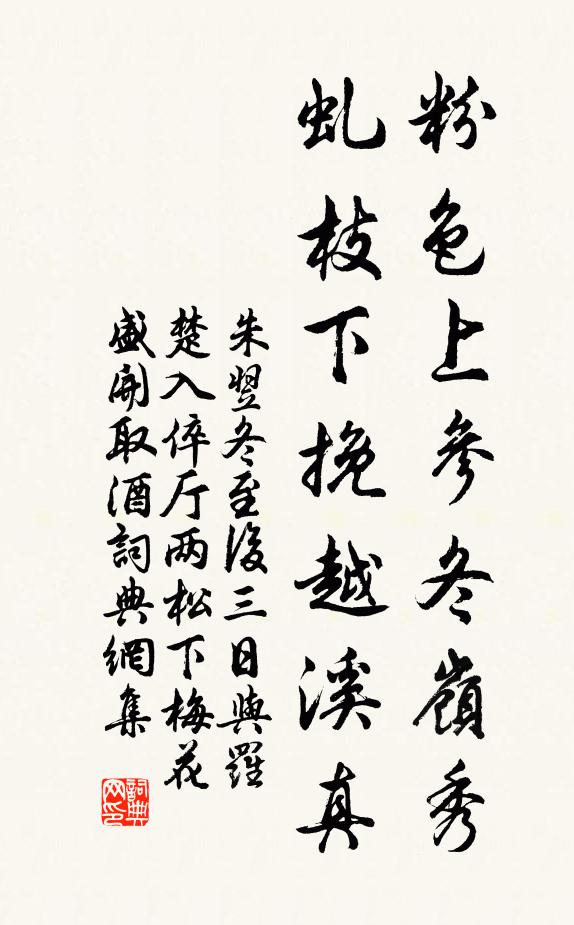 粉色上參冬嶺秀
虬枝下挽越溪真
朱翌冬至後三日與羅
楚入倅厅两松下梅花
盛開取酒詞典網集
詞典网印